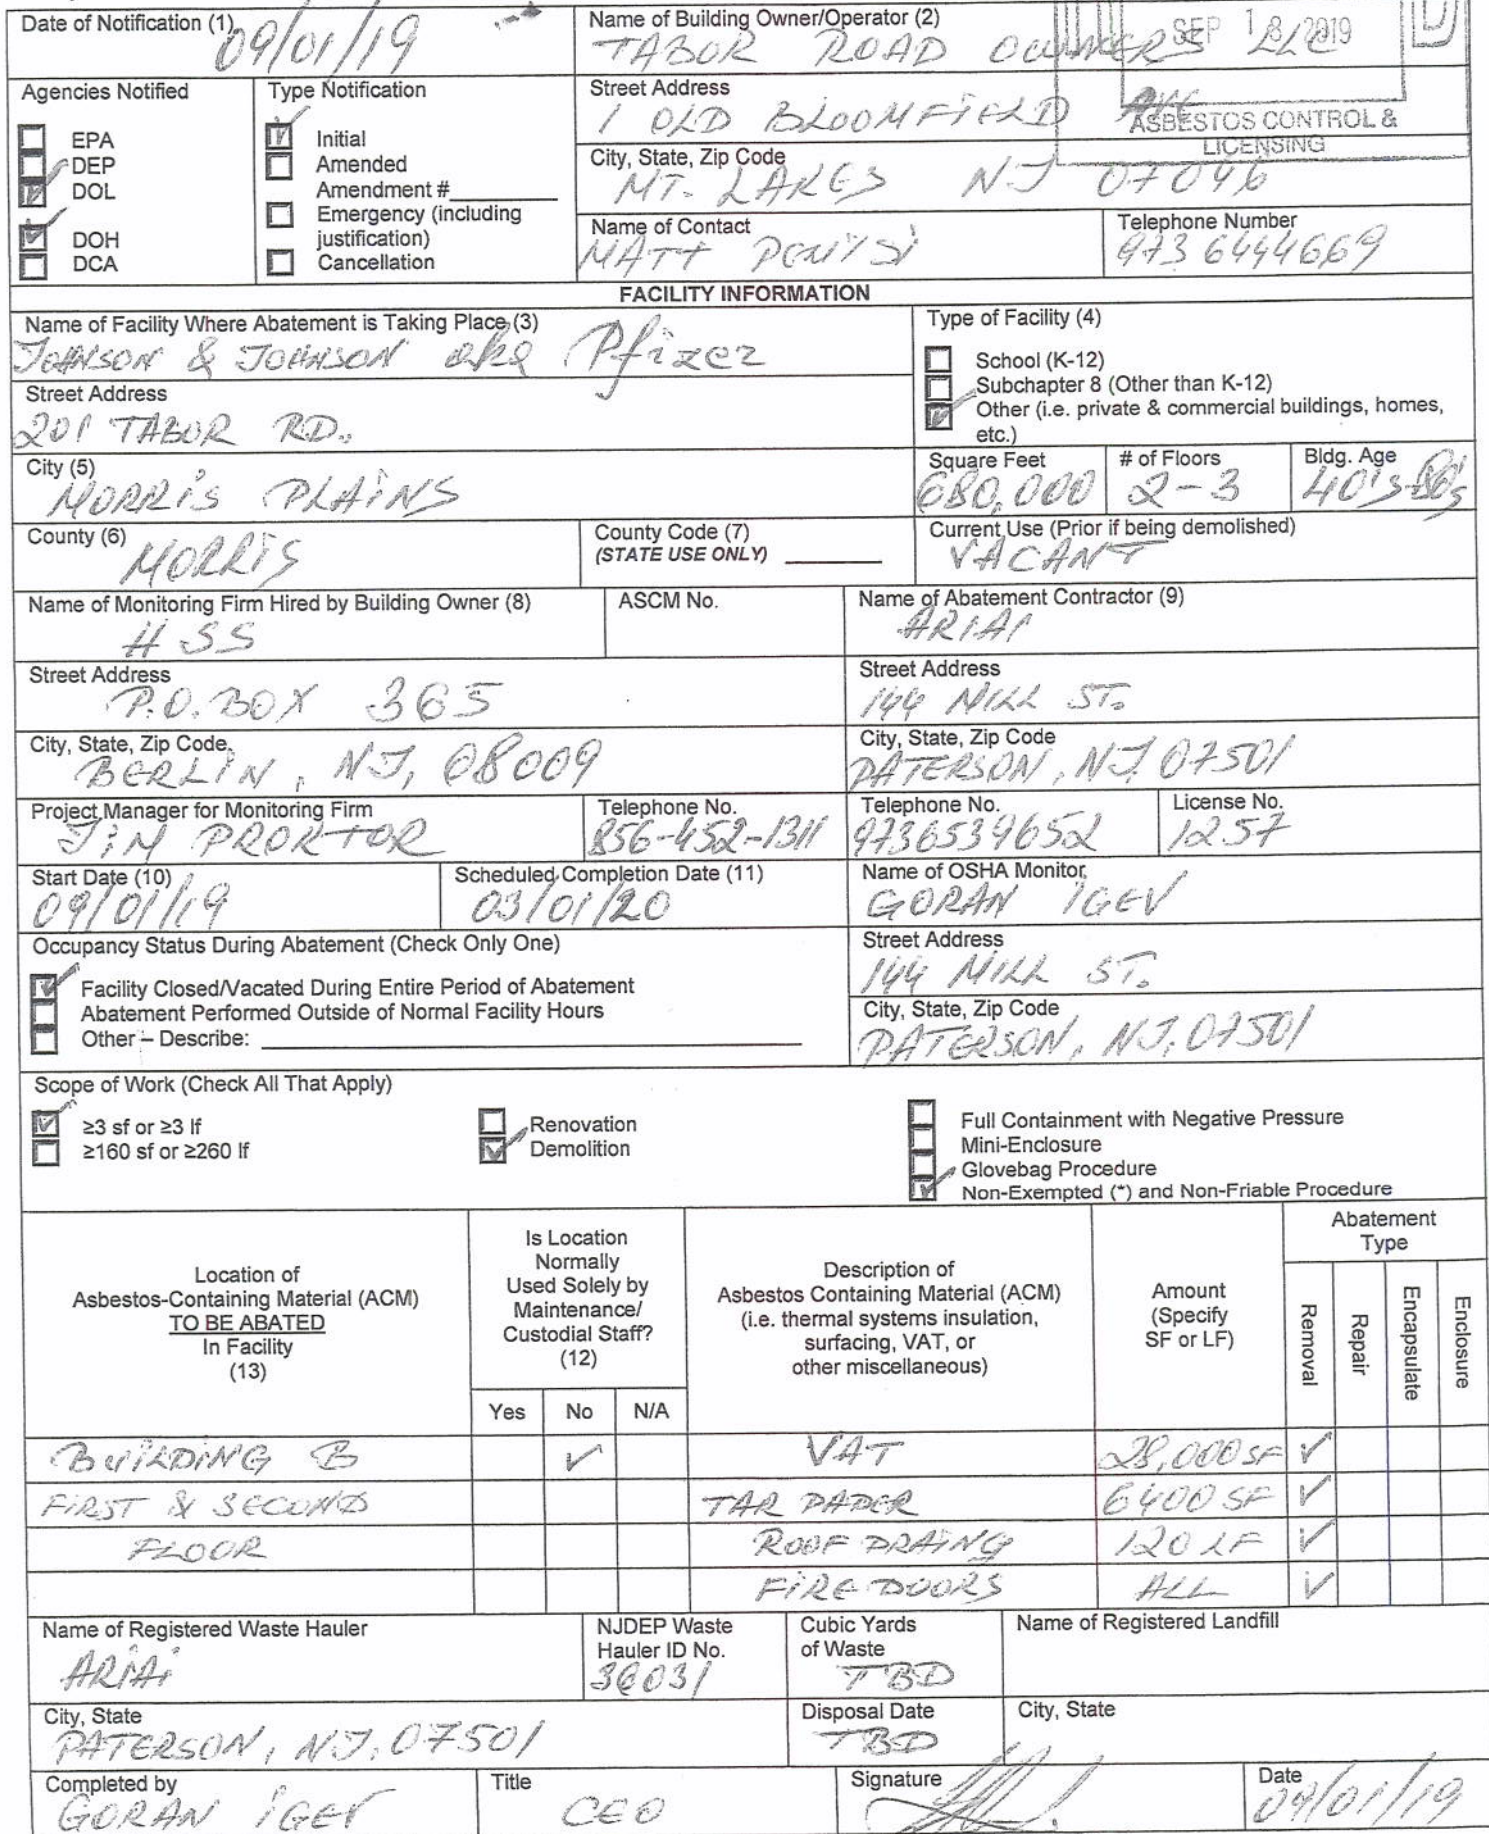 Date of Notification (1) 09/01/19
Name of Building Owner/Operator (2)
TABOR ROAD OWNERS LLC
SEP 18 2019
ASBESTOS CONTROL &
LICENSING
Agencies Notified
EPA
DEP
DOL
DOH
DCA
Type Notification
Initial
Amended
Amendment #
Emergency (including
justification)
Cancellation
Street Address
1 OLD BLOOMFIELD AVE
City, State, Zip Code
MT. LAKES NJ 07046
Name of Contact
MATT
Telephone Number
973 6444669
FACILITY INFORMATION
Name of Facility Where Abatement is Taking Place (3)
JOHNSON & JOHNSON aka Pfizer
Type of Facility (4)
School (K-12)
Subchapter 8 (Other than K-12)
Other (i.e. private & commercial buildings, homes,
etc.)
Street Address
201 TABOR RD.
City (5)
MORRIS PLAINS
Square Feet
680,000
# of Floors
2-3
Bldg. Age
40's-80's
County (6)
MORRIS
County Code (7)
(STATE USE ONLY)
Current Use (Prior if being demolished)
VACANT
Name of Monitoring Firm Hired by Building Owner (8)
HSS
ASCM No.
Name of Abatement Contractor (9)
ARIAI
Street Address
P.O. BOX 365
Street Address
144 MILL ST.
City, State, Zip Code
BERLIN, NJ, 08009
City, State, Zip Code
PATERSON, NJ. 07501
Project Manager for Monitoring Firm
JIM PROKTOR
Telephone No.
856-452-1311
Telephone No.
9736539652
License No.
1257
Start Date (10)
09/01/19
Scheduled Completion Date (11)
03/01/20
Name of OSHA Monitor
GORAN IGEV
Occupancy Status During Abatement (Check Only One)
Facility Closed/Vacated During Entire Period of Abatement
Abatement Performed Outside of Normal Facility Hours
Other – Describe:
Street Address
144 MILL ST.
City, State, Zip Code
PATERSON, NJ. 07501
Scope of Work (Check All That Apply)
≥3 sf or ≥3 lf
≥160 sf or ≥260 lf
Renovation
Demolition
Full Containment with Negative Pressure
Mini-Enclosure
Glovebag Procedure
Non-Exempted (*) and Non-Friable Procedure
Location of
Asbestos-Containing Material (ACM)
TO BE ABATED
In Facility
(13)
Is Location
Normally
Used Solely by
Maintenance/
Custodial Staff?
(12)
Yes No N/A
Description of
Asbestos Containing Material (ACM)
(i.e. thermal systems insulation,
surfacing, VAT, or
other miscellaneous)
Amount
(Specify
SF or LF)
Abatement
Type
Removal
Repair
Encapsulate
Enclosure
BUILDING B ✓ VAT 28,000 SF ✓
FIRST & SECOND TAR PAPER 6400 SF ✓
FLOOR ROOF DRAING 120 LF ✓
FIRE DOORS ALL ✓
Name of Registered Waste Hauler
ARIAi
NJDEP Waste
Hauler ID No.
36031
Cubic Yards
of Waste
TBD
Name of Registered Landfill
City, State
PATERSON, NJ. 07501
Disposal Date
TBD
City, State
Completed by
GORAN IGEV
Title
CEO
Signature
Date
09/01/19